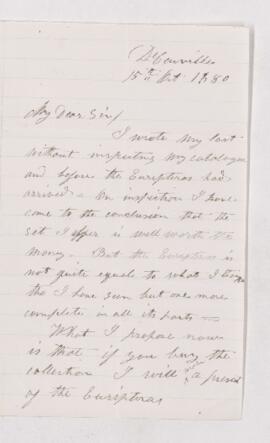 15th Oct. 1880
My Dear Sir/
I wrote my last
without inspecting my catalogue
and before the Eurypterus had
arrived - On inspection I have
come to the conclusion that the
set I offer is well worth the
money. But the Eurypterus is
not quite equal to what I thought
tho I have seen but one more
complete in all its parts =
What I propose now
is that if you buy the
collection I will a present
of the Euripteras